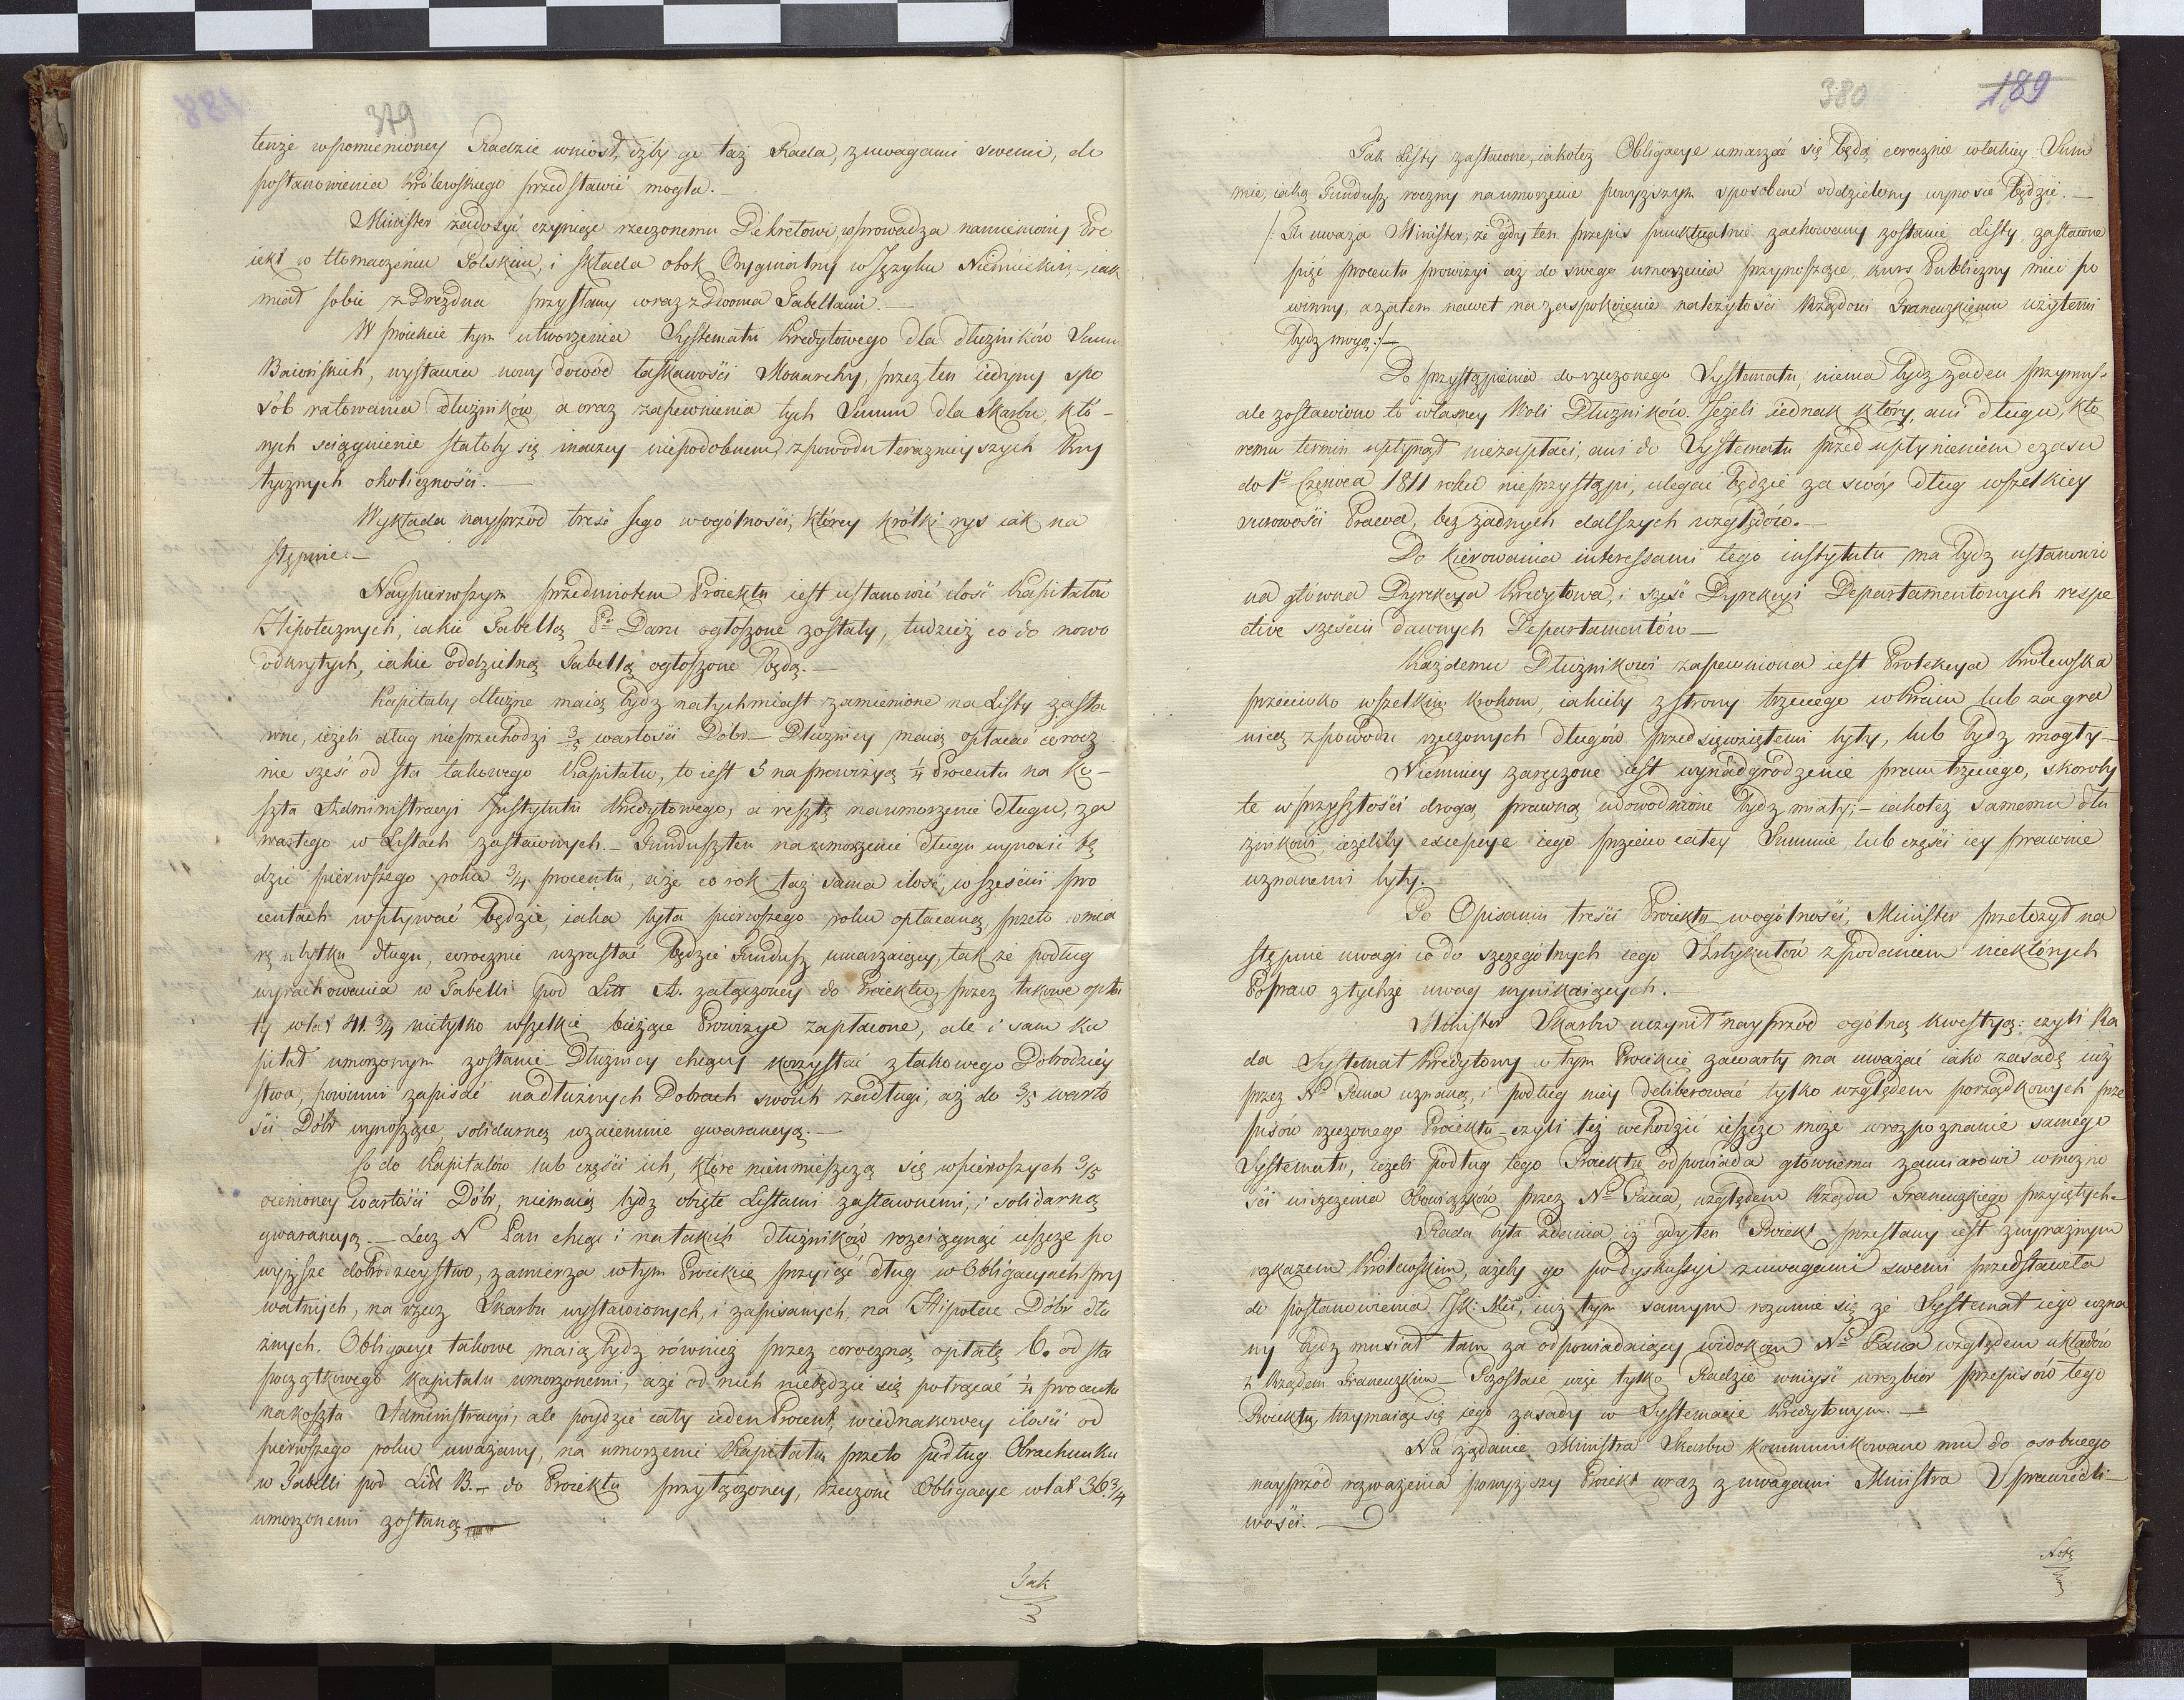 379
tenże wspomnioney Radzie wniosł, iżby go taż Rada, z uwagami swemi, do
postanowienia Królewskiego przedstawić mogła.
Minister zadosyć czyniąc rzeczonemu Dekretowi, wprowadza namieniony Pro
iekt w tłomaczeniu Polskim, i składa obok Oryginalny w Języku Niemieckim, iak
miał sobie z Drezdna przysłany wraz z Dwoma Tabellami. —
W proiekcie tym utworzenia Systematu Kredytowego dla dłużników Summ
Baiońskich, wystawia nowy dowód łaskawości Monarchy, przez ten iedyny spo
sób ratowania dłużników, a oraz zapewnienia tych Summ dla Skarbu, któ-
rych sciągnienie stałoby się inaczey niepodobnem, z powodu teraznieyszych Kry
tycznych okoliczności. —
Wykłada nayprzód treść Jego w ogólności, którey krótki rys iak na
stępuie. —
Naypierwszym przedmiotem Proiektu iest ustanowić ilość Kapitałów
Hipotecznych, iakie Tabellą Pa Daru ogłoszone zostały, tudzież co do nowo
odkrytych, iakie oddzielną Tabellą ogłoszone będą. —
Kapitały dłużne maią bydz natychmiast zamienione na Listy zasta
wne, ieżeli dług nieprzechodzi 3/5 wartości Dóbr — Dłużnicy maią opłacać corocz
nie sześć od sta takowego Kapitału, to iest 5 na prowizyą 1/4 Procentu na Ko-
szta Administracyi Instytutu Kredytowego, a resztę na umorzenie długu, za
wartego w Listach zastawnych. — Fundusz ten na umorzenie długu wynosić bę
dzie pierwszego roku 3/4 procentu, a że co rok taż sama ilość, w sześciu pro
centach wpływać będzie, iaka była pierwszego roku opłacaną, przeto w mia
rę ubytku długu, corocznie wzrastać będzie Fundusz umarzaiący, tak że podług
wyrachowania w Tabelli pod Litt A. załączoney do Proiektu, przez takowe opła
ty w lat 41 3/4 nietylko wszelkie bieżące Prowizye zapłacone, ale i sam ka
pitał umorzonym zostanie — Dłużnicy chcący korzystać z takowego Dobrodziey
stwa, powinni zapisać na dłużnych Dobrach swoich za długi, aż do 3/5 warto
ści Dóbr wynoszące, solidarną wzaiemnie gwarancyą. —
Co do Kapitałów lub części ich, które nieumieszczą się w pierwszych 3/5
ocenioney wartości Dóbr, niemaią bydz obięte Listami zastawnemi, i solidarną
gwarancyą. — Lecz N Pan chcąc i na takich dłużników rozciągnąć ieszcze po
wyższe dobrodzieystwo, zamierza w tym Proiekcie przyiąć dług w Obligacyach pry
watnych, na rzecz Skarbu wystawionych, i zapisanych na Hipotece Dóbr dłu
żnych. Obligacye takowe maią bydz również przez coroczną opłatę 6. od sta
początkowego kapitału umorzonemi, a że od nich niebędzie się potrącać 1/4 procentu
na koszta Administracyi, ale poydzie cały ieden Procent, w iednakowey ilości od
pierwszego roku uważany, na umorzenie Kapitału, przeto podług Obrachunku
w Tabelli pod Litt B. — do Proiektu przyłączoney, rzeczone Obligacye w lat 36 3/4
umorzonemi zostaną. —
Tak
380
189
Tak Listy zastawne, iakoteż Obligacye umarzać się będą corocznie w takiey Sum
mie, iaką Fundusz roczny na umorzenie powyższym sposobem oddzielony wynosić będzie. —
/: Tu uważa Minister, że gdy ten przepis punktualnie zachowany zostanie, Listy zastawne
pięć procentu prowizyi aż do swego umorzenia przynoszące, kurs Publiczny mieć po
winny, a zatem nawet na zaspokoienie należytości Rządowi Francuzkiemu użytemi
bydz mogą :/ —
Do przystąpienia do rzeczonego Systematu, niema bydz żaden przymus,
ale zostawiono to własney Woli Dłużników. Jeżeli iednak który, ani długu, któ
remu termin upłynął niezapłaci, ani do Systematu przed upłynieniem czasu
do 1o Czerwca 1811 roku nieprzystąpi, ulegać będzie za swóy dług wszelkiey
surowości Prawa, bez żadnych dalszych względów. —
Do kierowania interessami tego instytutu ma bydz ustanowio
na główna Dyrekcya Kredytowa, i sześć Dyrekcyi Departamentowych respe
ctive sześciu dawnych Departamentów —
Każdemu Dłużnikowi zapewniona iest Protekcya Królewska
przeciwko wszelkim krokom, iakieby z strony trzeciego w Kraiu lub za gra
nicą z powodu rzeczonych długów przedsięwziętemi były, lub bydz mogły —
Niemniey zaręczone iest wynadgrodzenie praw trzeciego, skoroby
te w przyszłości drogą prawną udowodnione bydz miały; — iakoteż samemu dłu
żnikowi, ieżeliby excepcye iego przeciw całey Summie, lub części iey prawnie
uznanemi były.
Po Opisaniu treści Proiektu w ogólności, Minister przełożył na
stępnie uwagi co do szczególnych iego Artykułów z podaniem niektórych
Popraw z tychże uwag wynikaiących. —
Minister Skarbu uczynił nayprzód ogólną kwestyą: czyli Ra
da Systemat Kredytowy w tym Proiekcie zawarty ma uważać iako zasadę iuż
przez No Pana uznaną, i podług niey deliberować tylko względem porządkowych prze
pisów rzeczonego Proiektu — czyli też wchodzić ieszcze może w rozpoznanie samego
Systematu, ieżeli podług tego Proiektu odpowiada głównemu zamiarowi w możno
ści uiszczenia Obowiązków przez No Pana, względem Rządu Francuzkiego przyiętych —
Rada była zdania, iż gdy ten Proiekt przesłany iest z wyraźnym
rozkazem Królewskim, ażeby go po dyskussyi z uwagami swemi przedstawiła
do postanowienia JK: Mci, iuż tym samym rozumie się że Systemat iego uzna
ny bydz musiał tam za odpowiadaiący widokom No Pana względem układów
z Rządem Francuzkim — Pozostaie więc tylko Radzie wniyść w rozbiór przepisów tego
Proiektu, trzymaiąc się iego zasady w Systemacie Kredytowym. —
Na żądanie Ministra Skarbu kommunikowano mu do osobnego
nayprzód rozważenia powyższy Proiekt wraz z uwagami Ministra Sprawiedli-
wości. —